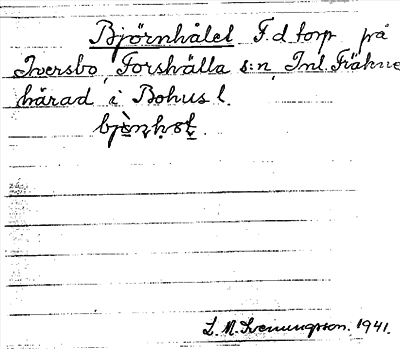 Björnhålet F.d torp på
Iversbo, Forshälla s:n, Inl. Fräkne
härad i Bohusl.
L. M. Svenungsson. 1941.